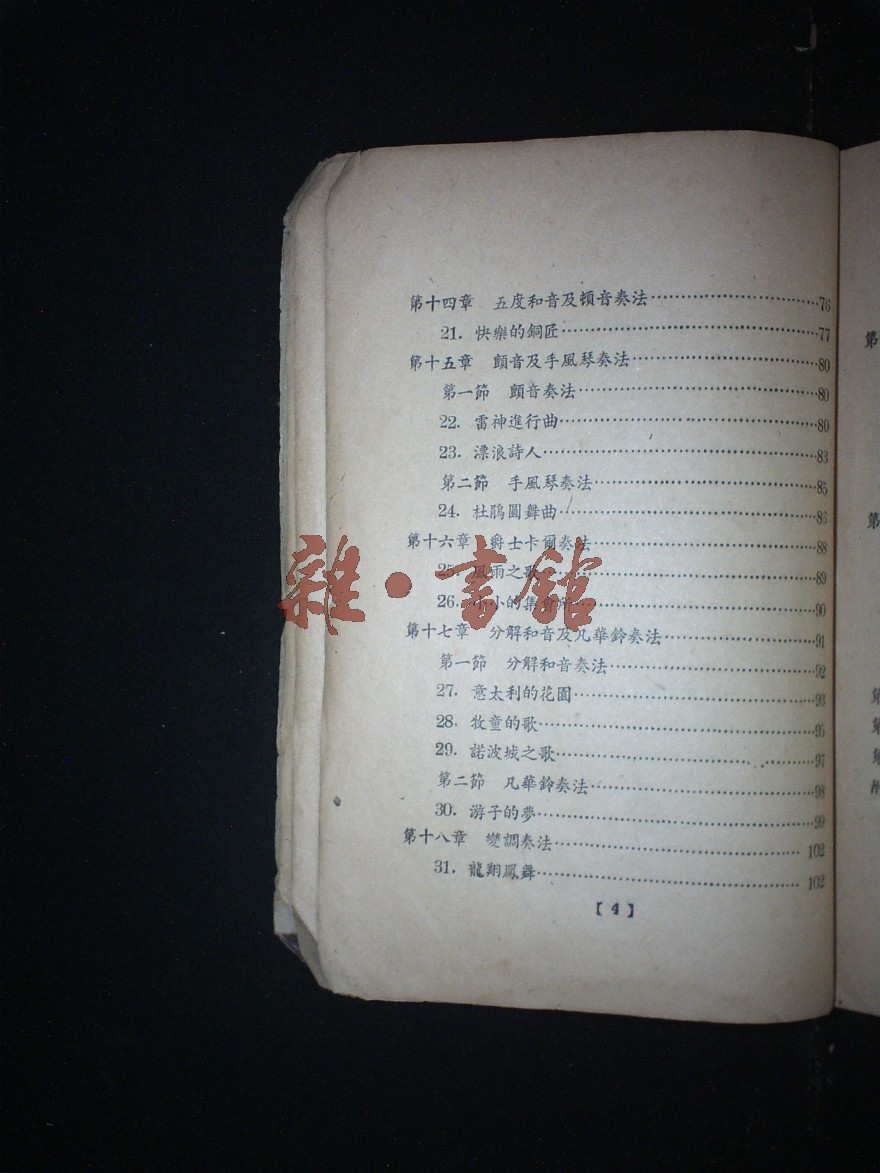 第十四章 五度和音及頓音奏法……76
21. 快樂的銅匠……77
第十五章 顫音及手風琴奏法……80
第一節 顫音奏法……80
22. 雷神進行曲……80
23. 漂浪詩人……83
第二節 手風琴奏法……85
24. 杜鵑圓舞曲……86
第十六章 爵士卡爾奏法……88
25. 風雨之歌……89
26. 小小的集會所……90
第十七章 分解和音及凡華鈴奏法……91
第一節 分解和音奏法……92
27. 意大利的花園……93
28. 牧童的歌……95
29. 諾波城之歌……97
第二節 凡華鈴奏法……98
30. 游子的夢……99
第十八章 變調奏法……102
31. 龍翔鳳舞……102
【4】
雜·書館
第
第
第
第
第
附
雜